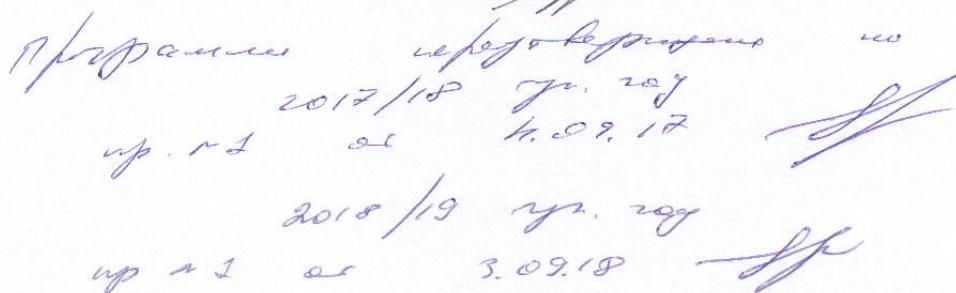 Программа переутверждена на
2017/18 уч. год
пр. №1 от 4.09.17
2018/19 уч. год
пр №1 от 3.09.18